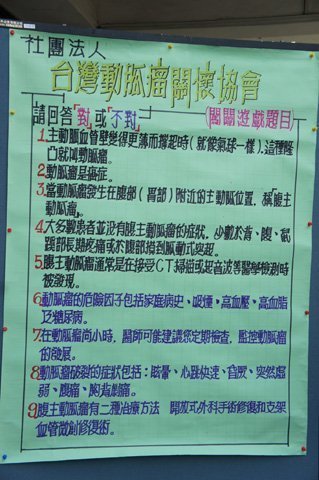 社團法人
台灣動脈瘤關懷協會
請回答「對」或「不對」
(闖關遊戲題目)
1.主動脈血管壁變得更薄而撐起時(就像氣球一樣),這種隆
凸就叫動脈瘤。
2.動脈瘤是癌症。
3.當動脈瘤發生在腹部(胃部)附近的主動脈位置,稱「腹主
動脈瘤」。
4.大多數患者並沒有腹主動脈瘤的症狀,少數於背、腹、
部長期疼痛或於腹部摸到脈動式突起。
5.腹主動脈瘤通常是在接受CT掃描或超音波等醫學檢測時
被發現。
6.動脈瘤的危險因子包括家庭病史、吸煙、高血壓、高血脂
及糖尿病。
7.在動脈瘤尚小時,醫師可能建議您定期檢查,監控動脈瘤
的發展。
8.動脈瘤破裂的症狀包括:眩暈、心跳快速、昏厥、突然虛
弱、腹痛、胸背劇痛。
9.腹主動脈瘤有二種治療方法 開放式外科手術修復和支架
血管微創修復術。